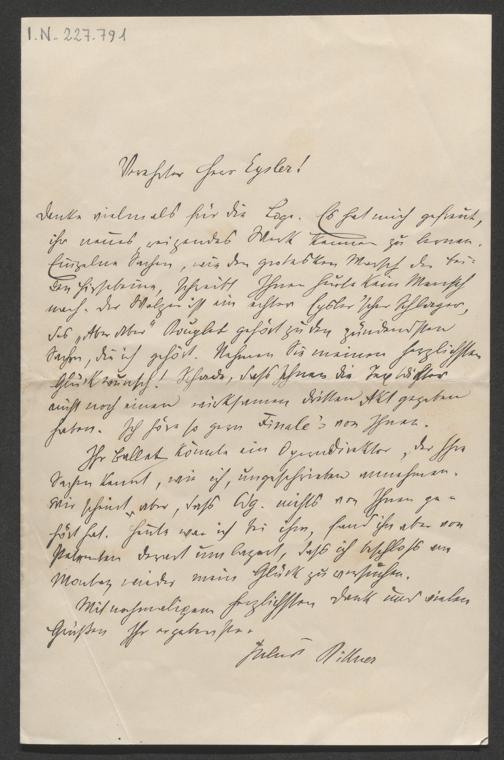 I.N. 227.791
Verehrter Herr Eysler!
Danke vielmals für die Loge. Es hat mich gefreut,
ihr neues, reizendes Werk kennen zu lernen.
Einzelne Sachen, wie den grotesken Marsch der bei-
den, schreibt Ihnen heute kein Mensch
nach. Der Walzer ist ein echter Eysler'scher Schlager,
das "Aber aber" Couplet gehört zu den zündendsten
Sachen, die ich gehört. Nehmen Sie meinen herzlichsten
Glückwunsch! Schade, dass Ihnen die Textdichter
nicht noch einen wirksamen dritten Akt gegeben
haben. Ich höre so gern Finale's von Ihnen.
Ihr Ballet könnte ein Operndirektor, der Ihre
Sachen kennt, wie ich, ungeschrieben annehmen.
Mir scheint aber, dass nichts von Ihnen ge-
hört hat. Heute war ich bei ihm, fand ihn aber von
derart umlagert, dass ich beschloss am
Montag wieder mein Glück zu versuchen.
Mit nochmaligem herzlichsten Dank und vielen
Grüßen Ihr ergebenster
Julius Bittner